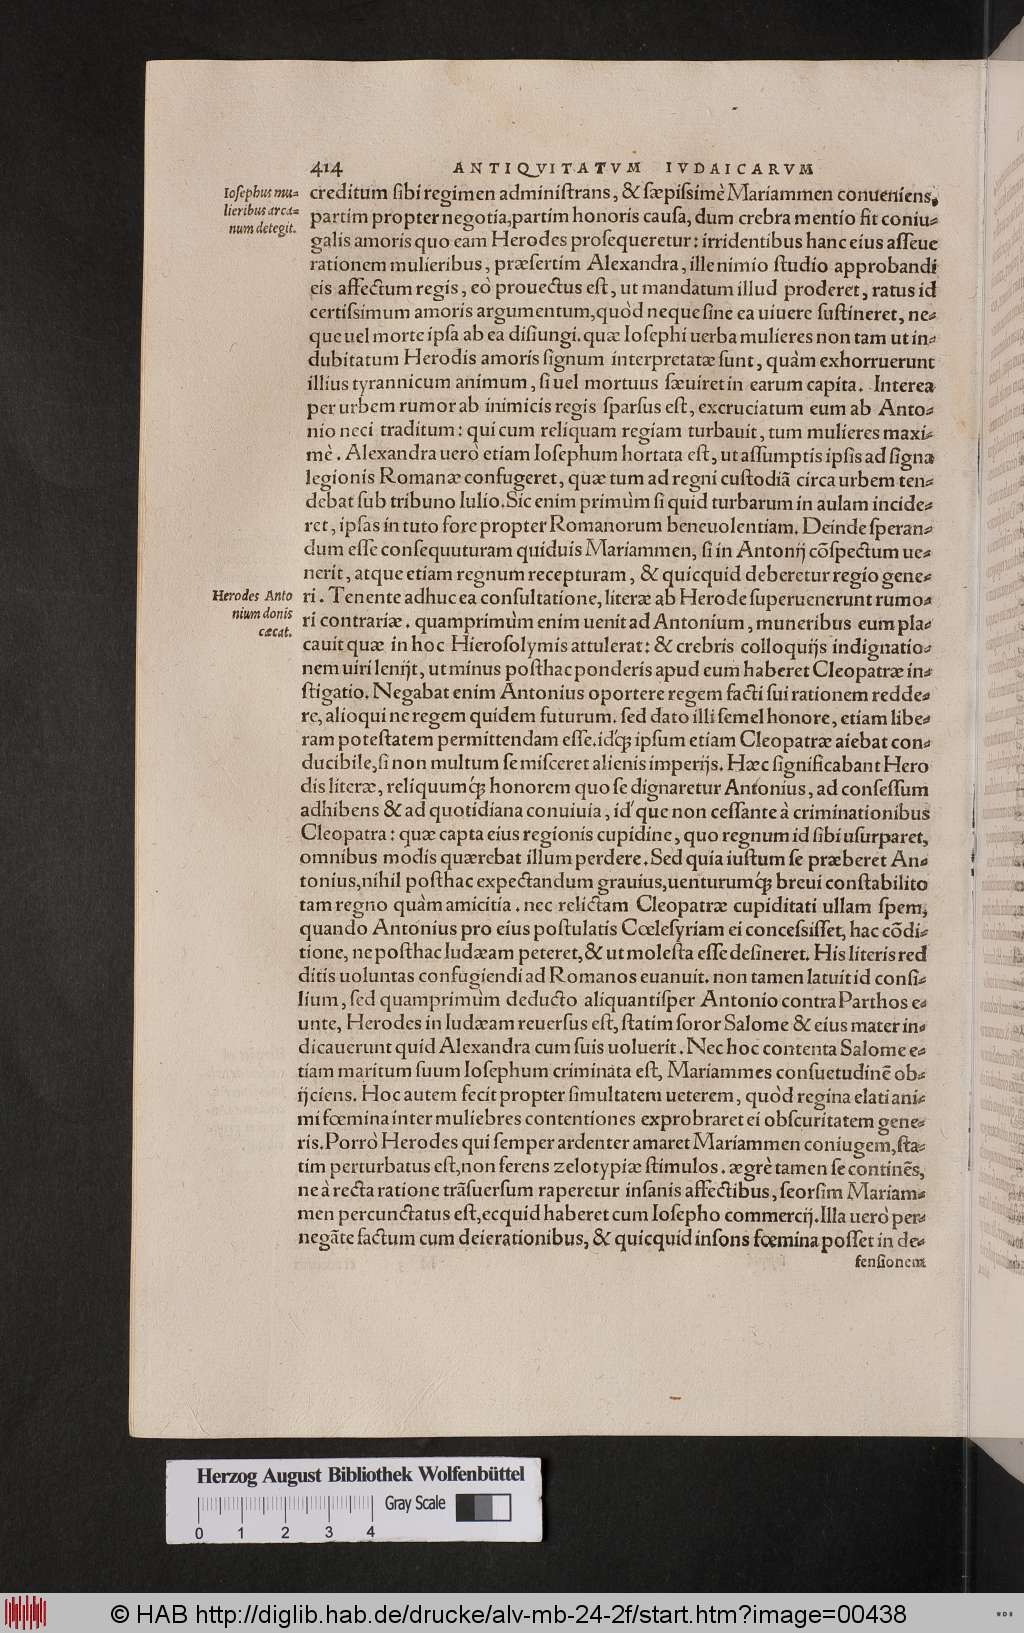 414 ANTIQVITATVM IVDAICARVM
Iosephus mu-
lieribus arca-
num detegit.
creditum sibi regimen administrans, & sæpissimè Mariammen conueniens,
partim propter negotia, partim honoris causa, dum crebra mentio fit coniu-
galis amoris quo eam Herodes prosequeretur: irridentibus hanc eius asseue
rationem mulieribus, præsertim Alexandra, ille nimio studio approbandi
eis affectum regis, eò prouectus est, ut mandatum illud proderet, ratus id
certissimum amoris argumentum, quòd neque sine ea uiuere sustineret, ne-
que uel morte ipsa ab ea disiungi. quæ Iosephi uerba mulieres non tam ut in-
dubitatum Herodis amoris signum interpretatæ sunt, quàm exhorruerunt
illius tyrannicum animum, si uel mortuus sæuiret in earum capita. Interea
per urbem rumor ab inimicis regis sparsus est, excruciatum eum ab Anto-
nio neci traditum: qui cum reliquam regiam turbauit, tum mulieres maxi-
mè. Alexandra uerò etiam Iosephum hortata est, ut assumptis ipsis ad signa
legionis Romanæ confugeret, quæ tum ad regni custodiã circa urbem ten-
debat sub tribuno Iulio. Sic enim primùm si quid turbarum in aulam incide-
ret, ipsas in tuto fore propter Romanorum beneuolentiam. Deinde speran-
dum esse consequuturam quiduis Mariammen, si in Antonij cõspectum ue-
nerit, atque etiam regnum recepturam, & quicquid deberetur regio gene-
Herodes Anto
nium donis
cæcat.
ri. Tenente adhuc ea consultatione, literæ ab Herode superuenerunt rumo-
ri contrariæ. quamprimùm enim uenit ad Antonium, muneribus eum pla-
cauit quæ in hoc Hierosolymis attulerat: & crebris colloquijs indignatio-
nem uiri lenijt, ut minus posthac ponderis apud eum haberet Cleopatræ in-
stigatio. Negabat enim Antonius oportere regem facti sui rationem redde-
re, alioqui ne regem quidem futurum. sed dato illi semel honore, etiam libe-
ram potestatem permittendam esse. idq́; ipsum etiam Cleopatræ aiebat con-
ducibile, si non multum se misceret alienis imperijs. Hæc significabant Hero
dis literæ, reliquumq́; honorem quo se dignaretur Antonius, ad consessum
adhibens & ad quotidiana conuiuia, id que non cessante à criminationibus
Cleopatra: quæ capta eius regionis cupidine, quo regnum id sibi usurparet,
omnibus modis quærebat illum perdere. Sed quia iustum se præberet An-
tonius, nihil posthac expectandum grauius, uenturumq́; breui constabilito
tam regno quàm amicitia. nec relictam Cleopatræ cupiditati ullam spem,
quando Antonius pro eius postulatis Cœlesyriam ei concessisset, hac cõdi-
tione, ne posthac Iudæam peteret, & ut molesta esse desineret. His literis red
ditis uoluntas confugiendi ad Romanos euanuit. non tamen latuit id consi-
lium, sed quamprimùm deducto aliquantisper Antonio contra Parthos e-
unte, Herodes in Iudæam reuersus est, statim soror Salome & eius mater in-
dicauerunt quid Alexandra cum suis uoluerit. Nec hoc contenta Salome e-
tiam maritum suum Iosephum criminata est, Mariammes consuetudinẽ ob-
ijciens. Hoc autem fecit propter simultatem ueterem, quòd regina elati ani-
mi fœmina inter muliebres contentiones exprobraret ei obscuritatem gene-
ris. Porrò Herodes qui semper ardenter amaret Mariammen coniugem, sta-
tim perturbatus est, non ferens zelotypiæ stimulos. ægrè tamen se continẽs,
ne à recta ratione trãsuersum raperetur insanis affectibus, seorsim Mariam-
men percunctatus est, ecquid haberet cum Iosepho commercij. Illa uerò per-
negãte factum cum deierationibus, & quicquid insons fœmina posset in de-
fensionem
Herzog August Bibliothek Wolfenbüttel
Gray Scale
0 1 2 3 4
© HAB http://diglib.hab.de/drucke/alv-mb-24-2f/start.htm?image=00438